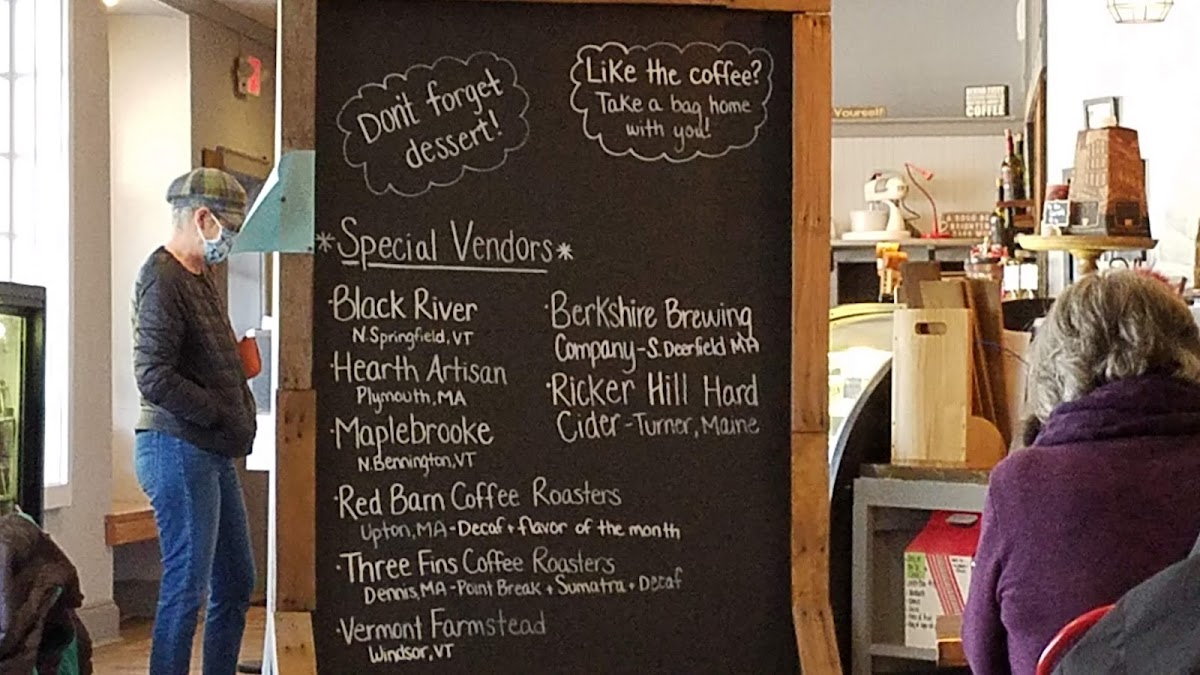 Don't forget
dessert!
Like the coffee?
Take a bag home
with you!
*Special Vendors*
·Black River
N.Springfield, VT
·Hearth Artisan
Plymouth, MA
·Maplebrooke
N.Bennington, VT
·Red Barn Coffee Roasters
Upton, MA-Decaf + flavor of the month
·Three Fins Coffee Roasters
Dennis, MA-Point Break + Sumatra + Decaf
·Vermont Farmstead
Windsor, VT
·Berkshire Brewing
Company-S. Deerfield MA
·Ricker Hill Hard
Cider-Turner, Maine
Yourself
COFFEE